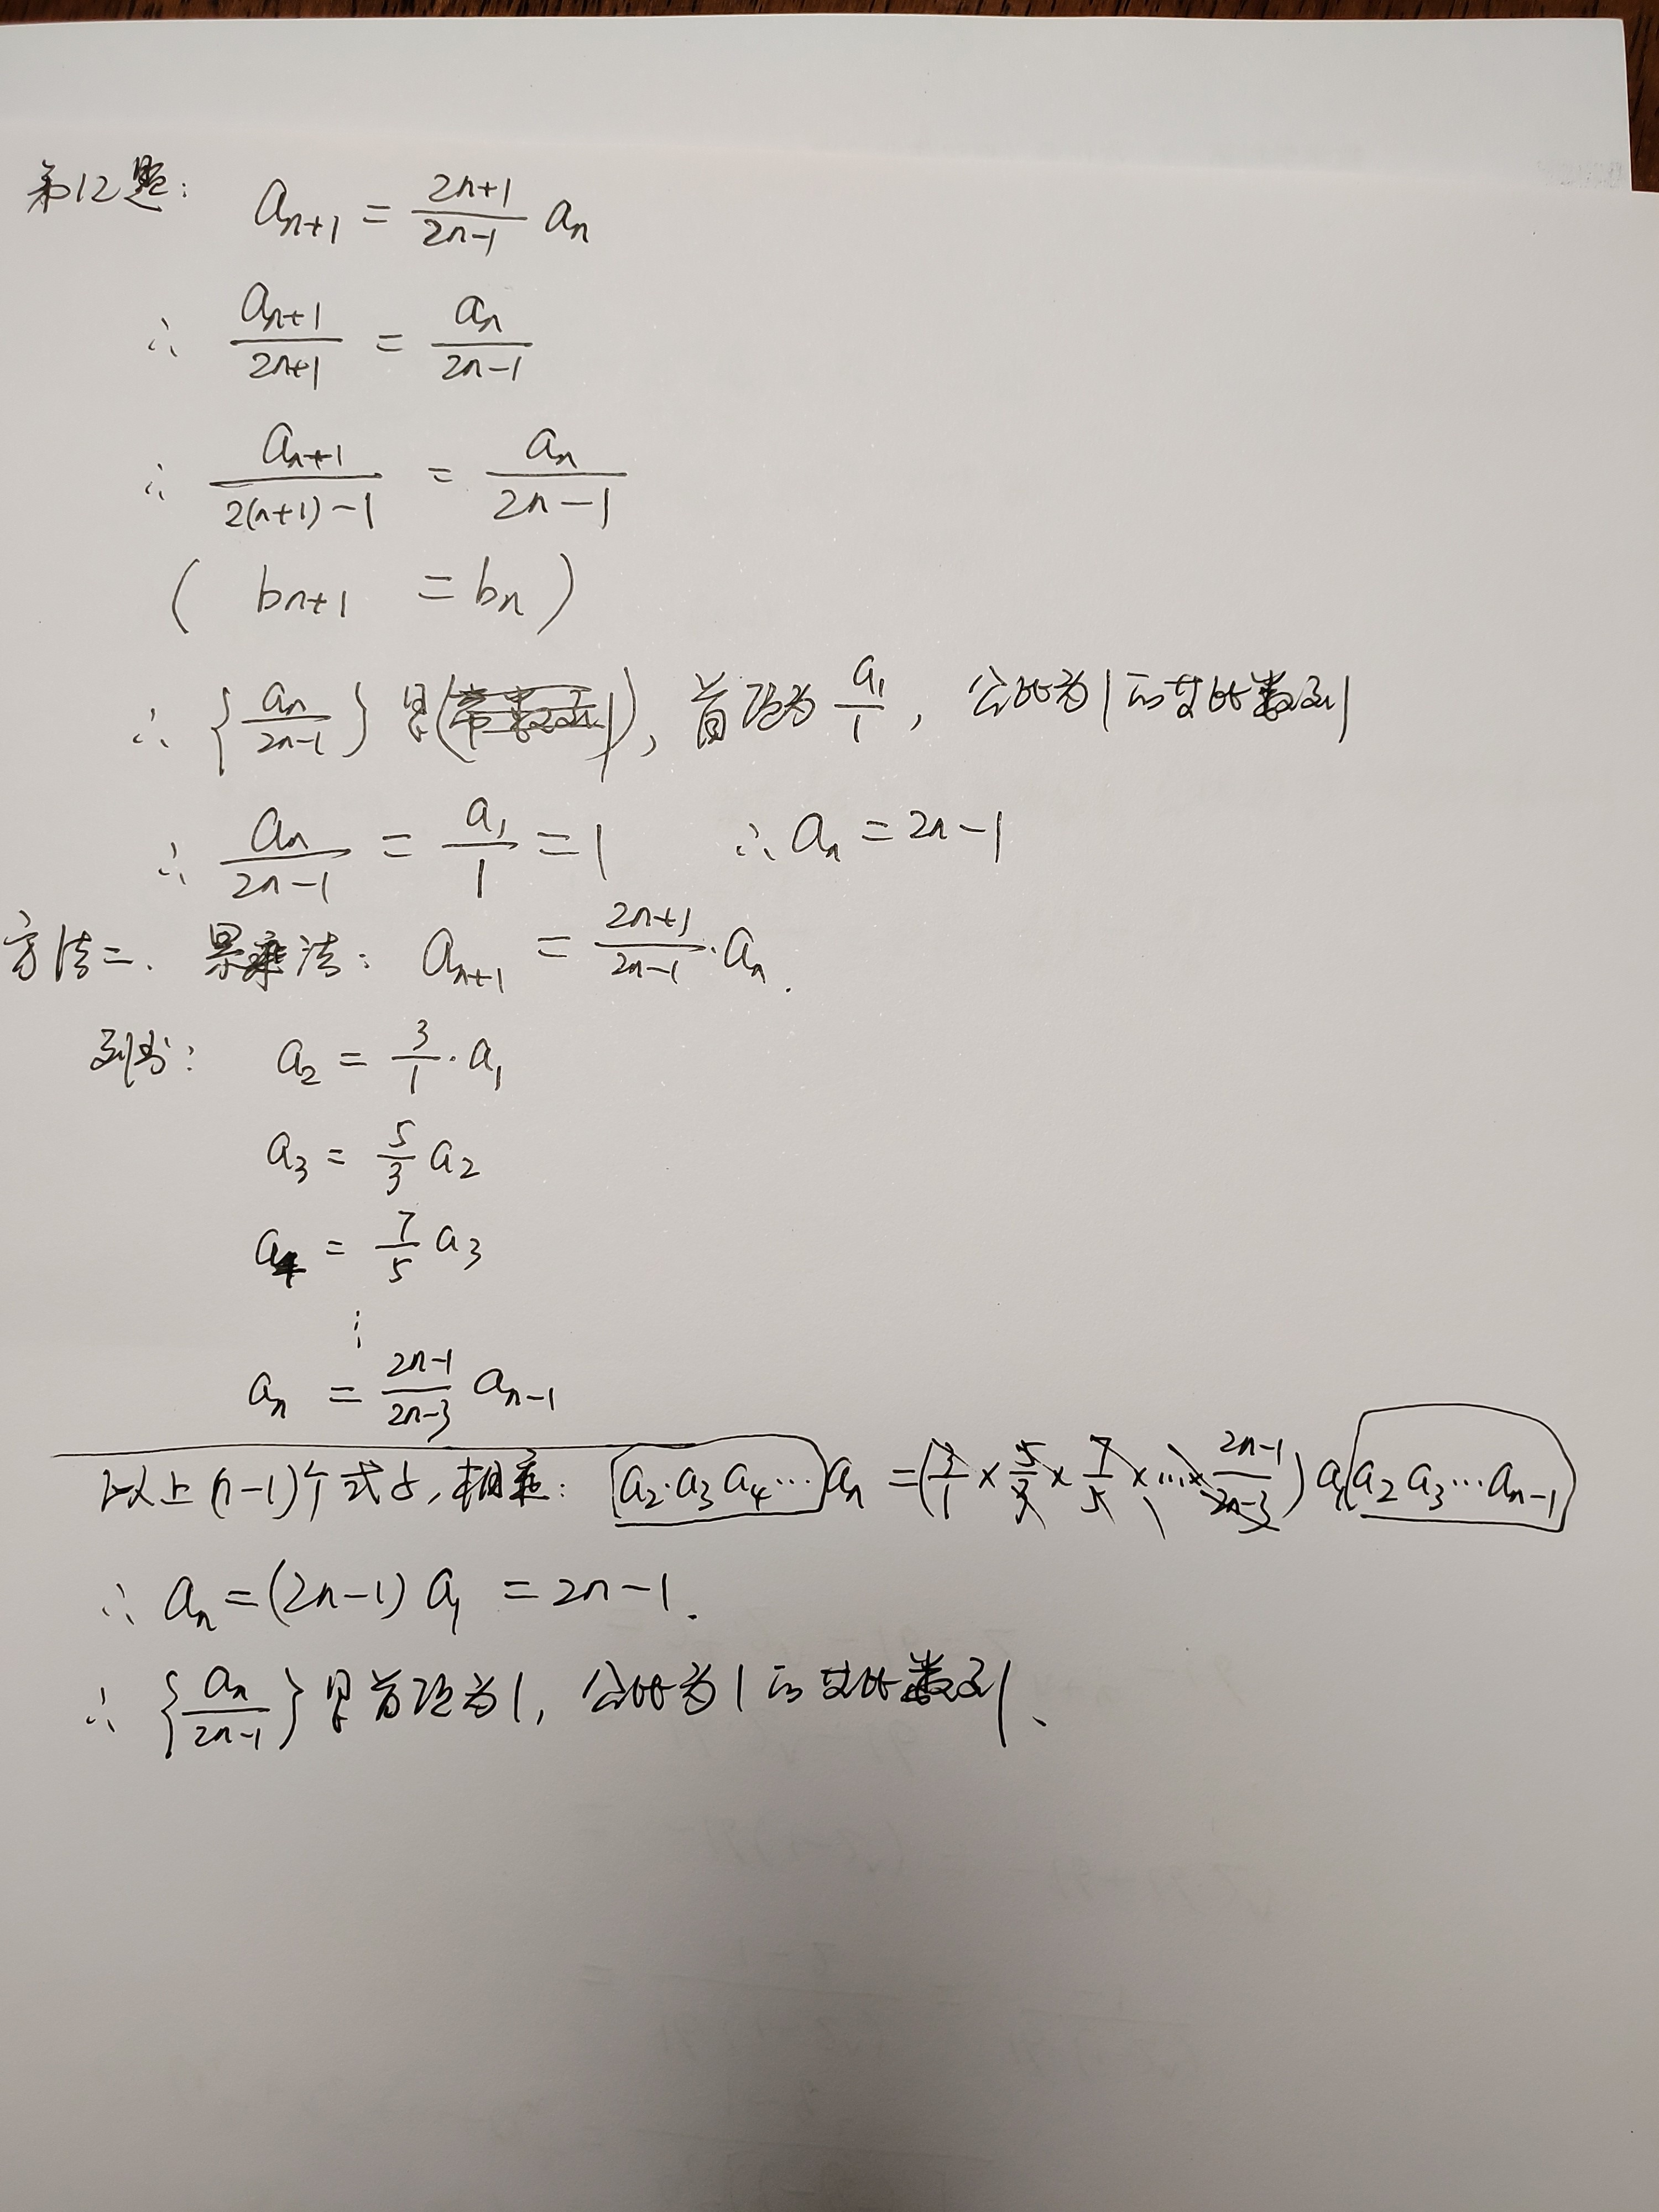 第12题: a_{n+1} = \frac{2n+1}{2n-1} a_n
∴ \frac{a_{n+1}}{2n+1} = \frac{a_n}{2n-1}
∴ \frac{a_{n+1}}{2(n+1)-1} = \frac{a_n}{2n-1}
( b_{n+1} = b_n )
∴ {\frac{a_n}{2n-1}} 是(常数列), 首项为 \frac{a_1}{1}, 公比为1的等比数列
∴ \frac{a_n}{2n-1} = \frac{a_1}{1} = 1 ∴ a_n = 2n-1
方法二. 累乘法: a_{n+1} = \frac{2n+1}{2n-1}·a_n.
列出: a_2 = \frac{3}{1}·a_1
a_3 = \frac{5}{3} a_2
a_4 = \frac{7}{5} a_3
⋮
a_n = \frac{2n-1}{2n-3} a_{n-1}
以上(n-1)个式子,相乘: a_2·a_3 a_4 ⋯ a_n = (\frac{3}{1} × \frac{5}{3} × \frac{7}{5} × ⋯ × \frac{2n-1}{2n-3}) a_1 a_2 a_3 ⋯ a_{n-1}
∴ a_n = (2n-1) a_1 = 2n-1.
∴ {\frac{a_n}{2n-1}} 是首项为1, 公比为1的等比数列、